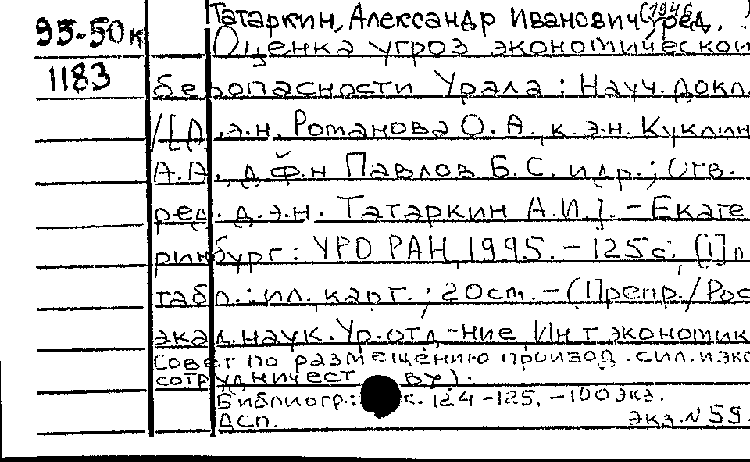 Татаркин, Александр Иванович (1946, ред.
95-50к
Оценка угроз экономической
1183
безопасности Урала : Науч. докл.
/[Д.э.н. Романова О. А., к.э.н. Куклин
А.А., д.ф.н Павлов Б.С. и др.; Отв.
ред. д.э.н. Татаркин А.И.]. - Екате
ринбург : УРО РАН, 1995. - 125с, [1]л
табл. : ил. карт. ; 20cm. - (Препр./Рос
акад. наук. Ур. отд-ние Ин-т экономик
Совет по размещению производ. сил. и эко
сотрудничест ву).
Библиогр.: с. 124-125. - 100 экз.
ДСП.
Экз. N 59.